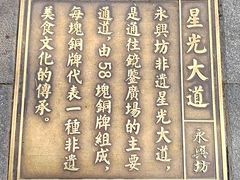 星光大道
永興坊
永興坊非遺星光大道，
是通往鏡鑒廣場的主要
通道，由58塊銅牌組成，
每塊銅牌代表一種非遺
美食文化的傳承。